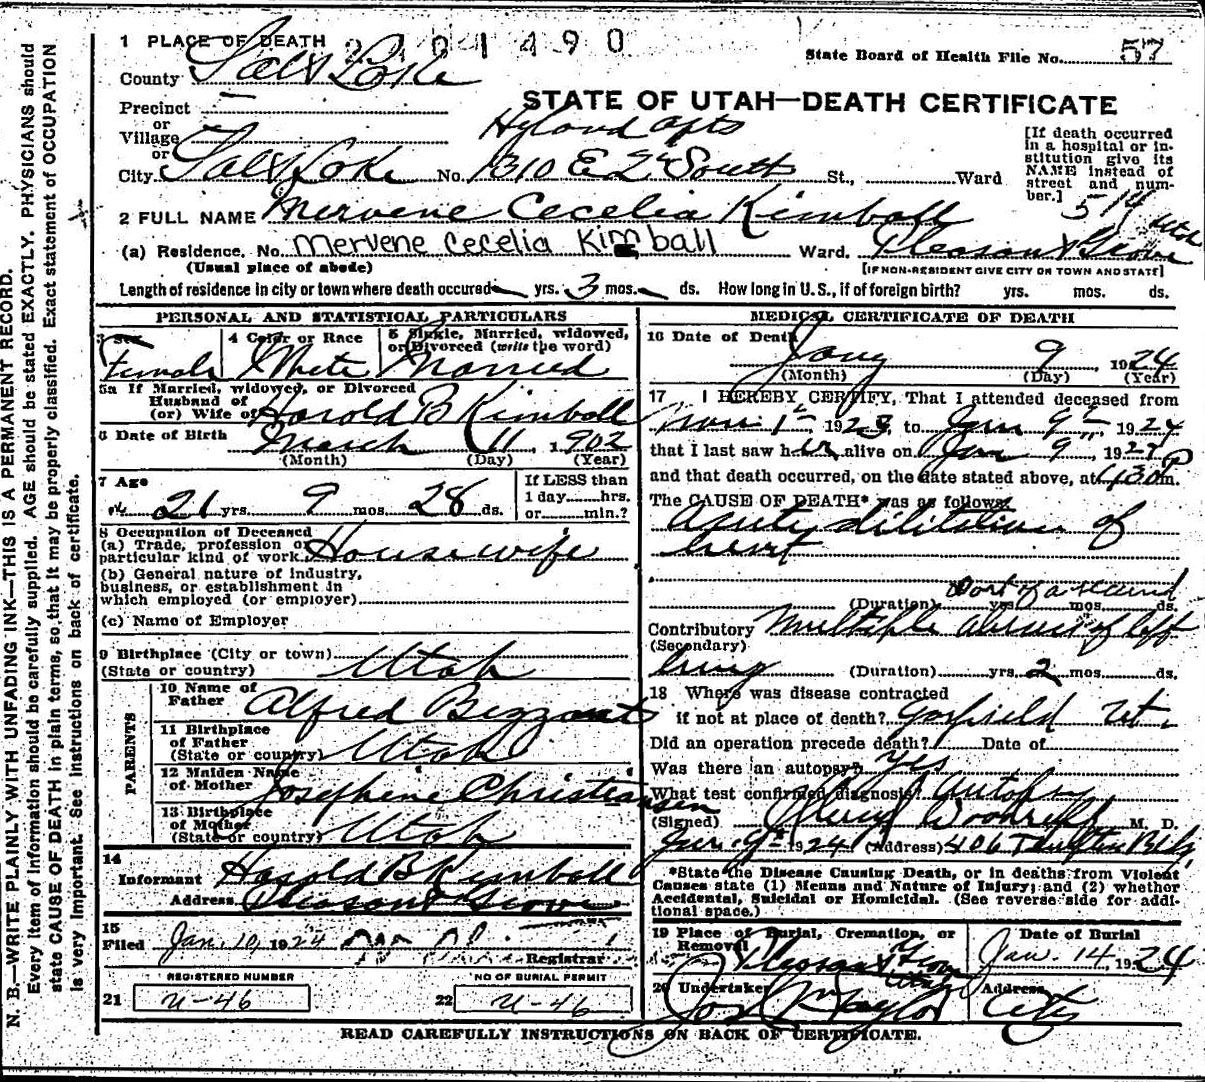 N. B.—WRITE PLAINLY WITH UNFADING INK—THIS IS A PERMANENT RECORD.
Every item of information should be carefully supplied. AGE should be stated EXACTLY. PHYSICIANS should
state CAUSE OF DEATH in plain terms, so that it may be properly classified. Exact statement of OCCUPATION
is very important. See instructions on back of certificate.
1 PLACE OF DEATH
1490
State Board of Health File No. 57
County Salt Lake
STATE OF UTAH—DEATH CERTIFICATE
Precinct
or
Village
or
Hyland Apts
City Salt Lake No. 1310 E 2d South St., Ward
[If death occurred
in a hospital or in-
stitution give its
NAME instead of
street and num-
ber.]
2 FULL NAME Mervene Cecelia Kimball
(a) Residence. No. Mervene Cecelia Kimball Ward. Pleasant Grove Utah
(Usual place of abode)
[IF NON-RESIDENT GIVE CITY OR TOWN AND STATE]
Length of residence in city or town where death occured yrs. 3 mos. ds. How long in U.S., if of foreign birth? yrs. mos. ds.
PERSONAL AND STATISTICAL PARTICULARS
3 Sex
Female
4 Color or Race
White
5 Single, Married, widowed,
or Divorced (write the word)
Married
5a If Married, widowed, or Divorced
Husband of
(or) Wife of Harold B Kimball
6 Date of Birth March 11, 1902
(Month) (Day) (Year)
7 Age
21 yrs. 9 mos. 28 ds.
If LESS than
1 day hrs.
or min.?
8 Occupation of Deceased
(a) Trade, profession or
particular kind of work Housewife
(b) General nature of industry,
business, or establishment in
which employed (or employer)
(c) Name of Employer
9 Birthplace (City or town)
(State or country) Utah
PARENTS
10 Name of
Father Alfred Bezzant
11 Birthplace
of Father
(State or country) Utah
12 Maiden Name
of Mother Josephine Christiansen
13 Birthplace
of Mother
(State or country) Utah
14
Informant Harold B Kimball
Address Pleasant Grove
15
Filed Jan. 10, 1924
Registrar
REGISTERED NUMBER
21 U-46
NO OF BURIAL PERMIT
22 U-46
MEDICAL CERTIFICATE OF DEATH
16 Date of Death
Jany 9 1924
(Month) (Day) (Year)
17 I HEREBY CERTIFY, That I attended deceased from
Nov 1st, 1923, to Jan 9th, 1924
that I last saw her alive on Jan 9, 192
and that death occurred, on the date stated above, at m.
The CAUSE OF DEATH* was as follows:
acute dilitation of
heart
(Duration) yrs. mos. ds.
Part of a second
Contributory Multiple abscess of left
(Secondary)
lung (Duration) yrs. 2 mos. ds.
18 Where was disease contracted
if not at place of death? Garfield Ut.
Did an operation precede death? Date of
Was there an autopsy? Yes
What test confirmed diagnosis? Autopsy
(Signed) M. D.
Jan. 9th 1924 (Address) 406 Templeton Bldg
*State the Disease Causing Death, or in deaths from Violent
Causes state (1) Means and Nature of Injury; and (2) whether
Accidental, Suicidal or Homicidal. (See reverse side for addi-
tional space.)
19 Place of Burial, Cremation, or
Removal
Pleasant Grove
Utah
Date of Burial
Jan. 14, 1924
20 Undertaker
Jos Taylor
Address
City
READ CAREFULLY INSTRUCTIONS ON BACK OF CERTIFICATE.